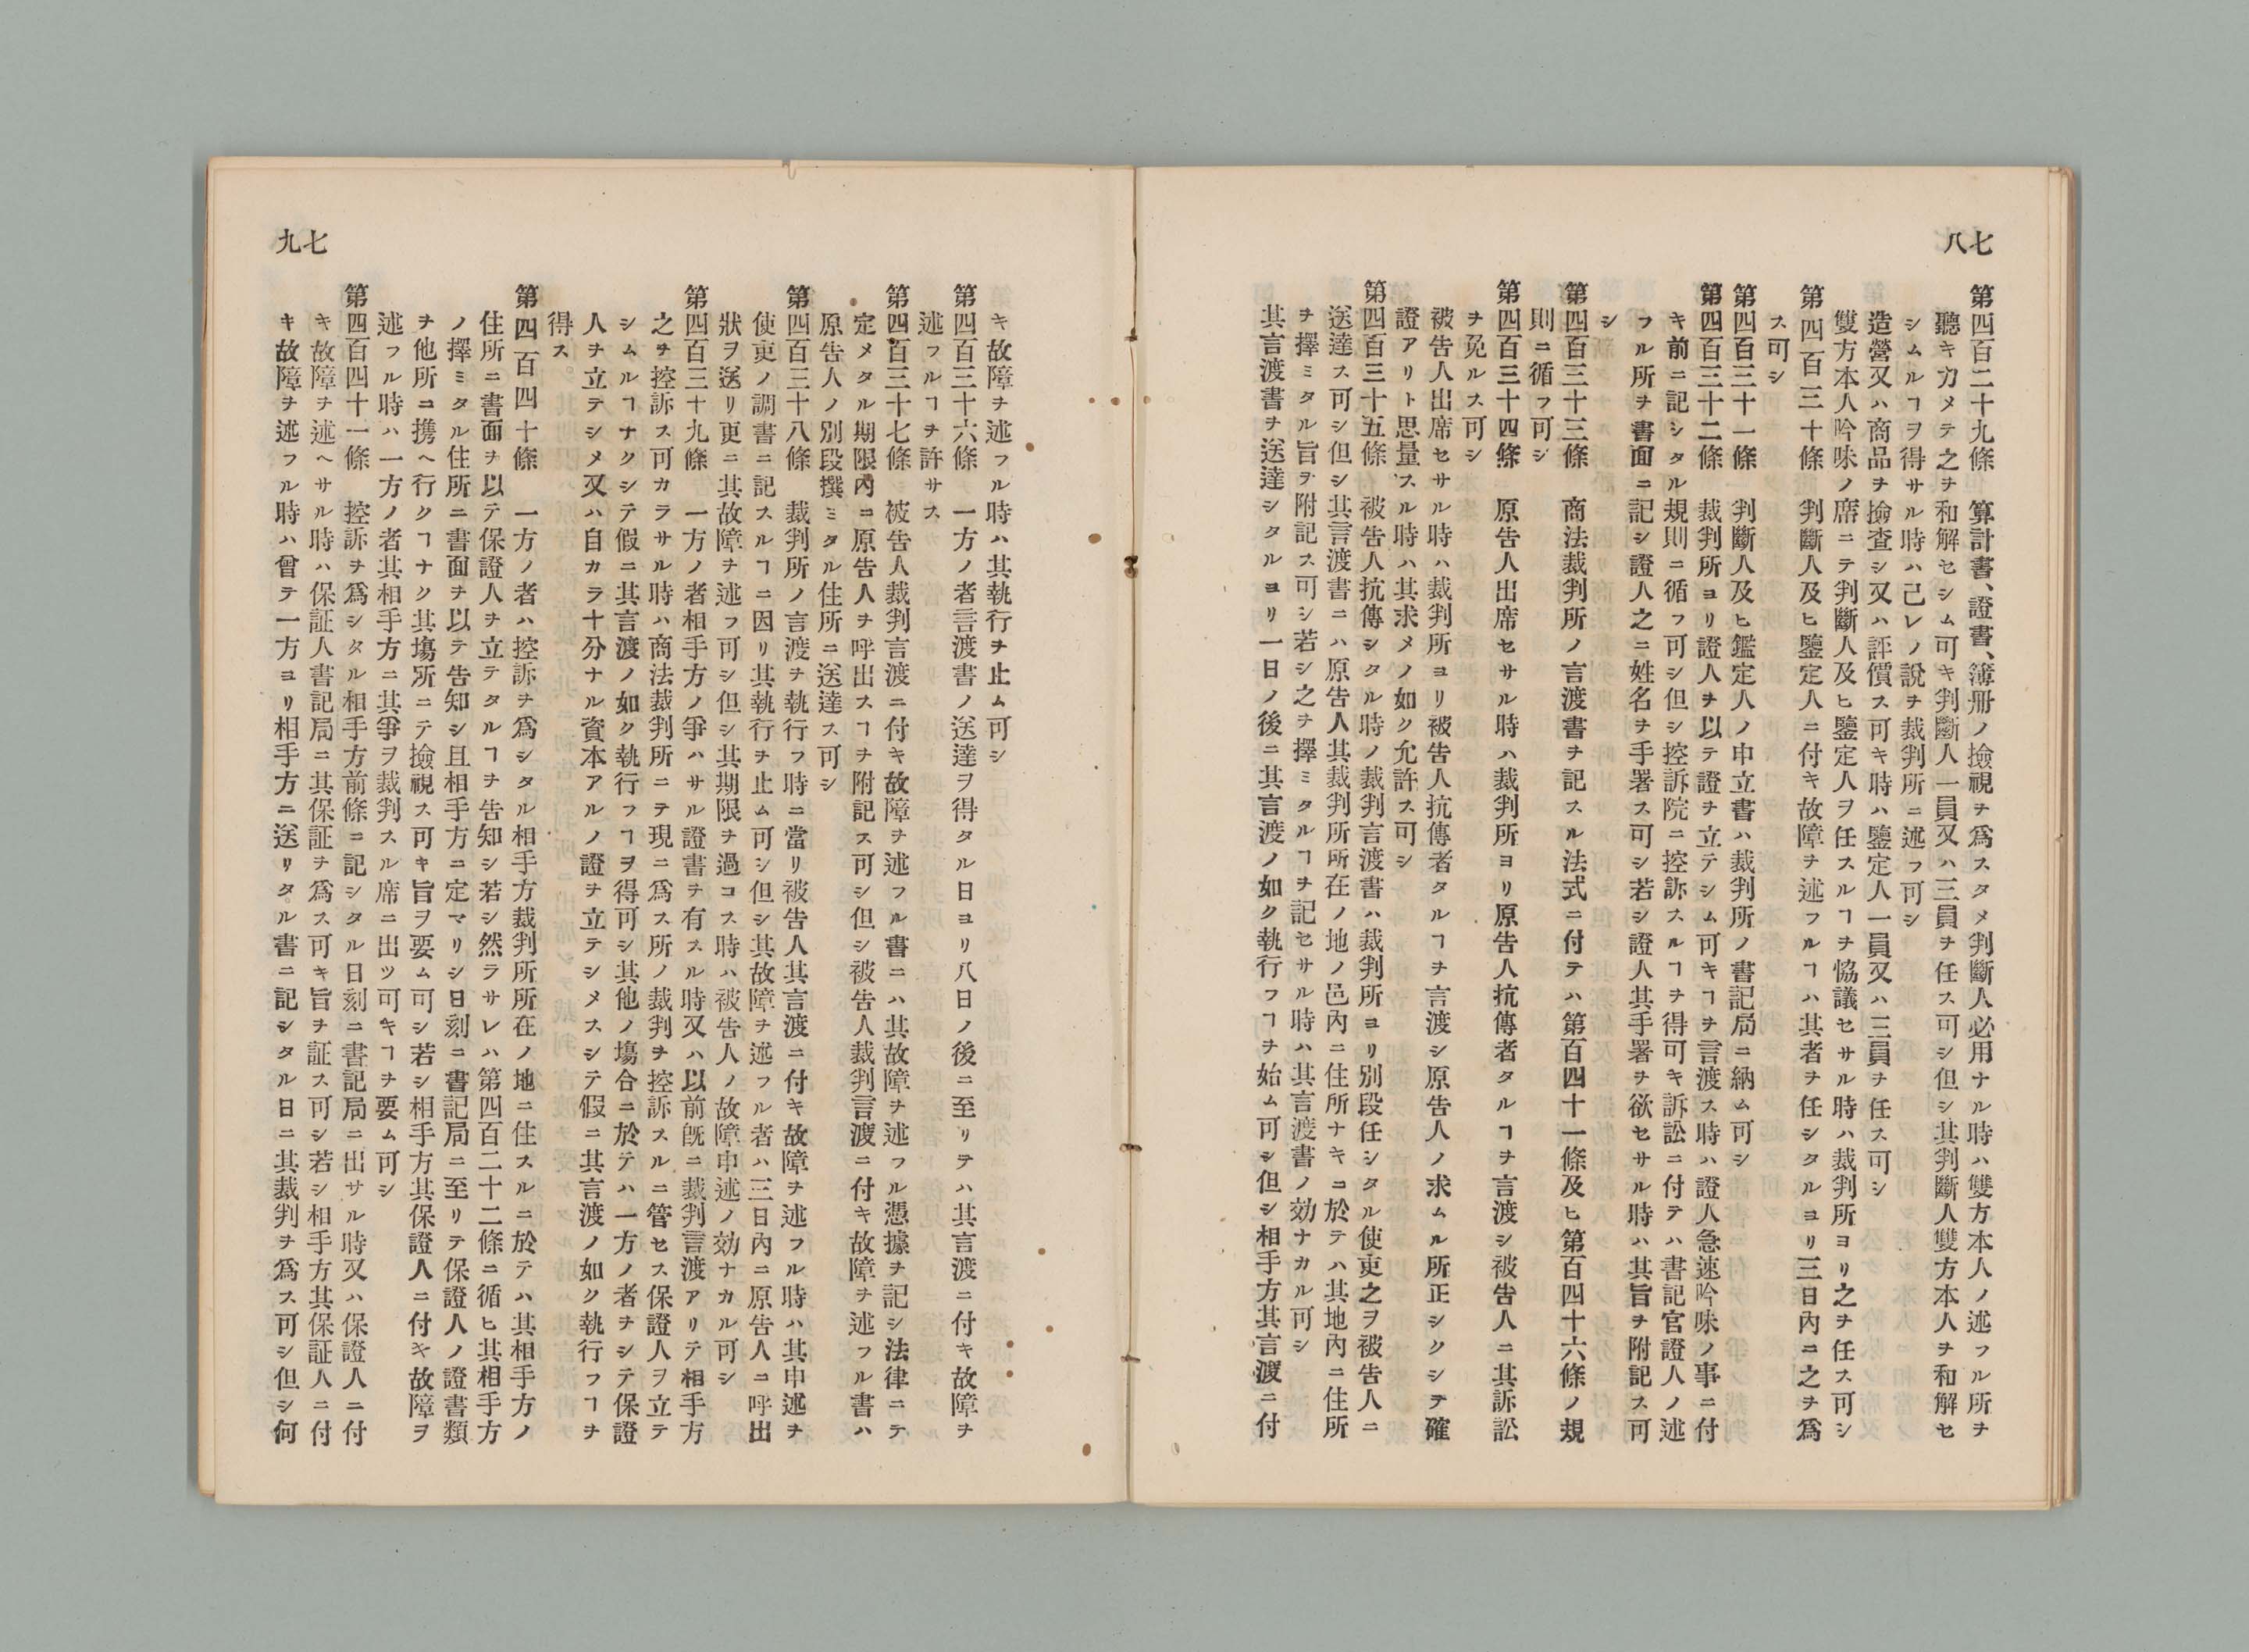 七八
第四百二十九條　算計書、證書、簿册ノ撿視ヲ爲スタメ判斷人必用ナル時ハ雙方本人ノ述フル所ヲ
聽キ力メテ之ヲ和解セシム可キ判斷人一員又ハ三員ヲ任ス可シ但シ其判斷人雙方本人ヲ和解セ
シムルヿヲ得サル時ハ己レノ說ヲ裁判所ニ述フ可シ
造營又ハ商品ヲ撿查シ又ハ評價ス可キ時ハ鑒定人一員又ハ三員ヲ任ス可シ
雙方本人吟味ノ席ニテ判斷人及ヒ鑒定人ヲ任スルヿヲ恊議セサル時ハ裁判所ヨリ之ヲ任ス可シ
第四百三十條　判斷人及ヒ鑒定人ニ付キ故障ヲ述フルヿハ其者ヲ任シタルヨリ三日內ニ之ヲ爲
ス可シ
第四百三十一條　判斷人及ヒ鑑定人ノ申立書ハ裁判所ノ書記局ニ納ム可シ
第四百三十二條　裁判所ヨリ證人ヲ以テ證ヲ立テシム可キヿヲ言渡ス時ハ證人急速吟味ノ事ニ付
キ前ニ記シタル規則ニ循フ可シ但シ控訴院ニ控訴スルヿヲ得可キ訴訟ニ付テハ書記官證人ノ述
フル所ヲ書面ニ記シ證人之ニ姓名ヲ手署ス可シ若シ證人其手署ヲ欲セサル時ハ其旨ヲ附記ス可
シ
第四百三十三條　商法裁判所ノ言渡書ヲ記スル法式ニ付テハ第百四十一條及ヒ第百四十六條ノ規
則ニ循フ可シ
第四百三十四條　原告人出席セサル時ハ裁判所ヨリ原告人抗傳者タルヿヲ言渡シ被告人ニ其訴訟
ヲ免ルス可シ
被告人出席セサル時ハ裁判所ヨリ被告人抗傳者タルヿヲ言渡シ原告人ノ求ムル所正シクシテ確
證アリト思量スル時ハ其求メノ如ク允許ス可シ
第四百三十五條　被告人抗傳シタル時ノ裁判言渡書ハ裁判所ヨリ別段任シタル使吏之ヲ被告人ニ
送達ス可シ但シ其言渡書ニハ原告人其裁判所所在ノ地ノ邑內ニ住所ナキニ於テハ其地內ニ住所
ヲ擇ミタル旨ヲ附記ス可シ若シ之ヲ擇ミタルヿヲ記セサル時ハ其言渡書ノ効ナカル可シ
其言渡書ヲ送達シタルヨリ一日ノ後ニ其言渡ノ如ク執行フヿヲ始ム可シ但シ相手方其言渡ニ付
七九
キ故障ヲ述フル時ハ其執行ヲ止ム可シ
第四百三十六條　一方ノ者言渡書ノ送達ヲ得タル日ヨリ八日ノ後ニ至リテハ其言渡ニ付キ故障ヲ
述フルヿヲ許サス
第四百三十七條　被告人裁判言渡ニ付キ故障ヲ述フル書ニハ其故障ヲ述フル憑據ヲ記シ法律ニテ
定メタル期限內ニ原告人ヲ呼出スヿヲ附記ス可シ但シ被告人裁判言渡ニ付キ故障ヲ述フル書ハ
原告人ノ別段撰ミタル住所ニ送達ス可シ
第四百三十八條　裁判所ノ言渡ヲ執行フ時ニ當リ被告人其言渡ニ付キ故障ヲ述フル時ハ其申述ヲ
使吏ノ調書ニ記スルヿニ因リ其執行ヲ止ム可シ但シ其故障ヲ述フル者ハ三日內ニ原告人ニ呼出
狀ヲ送リ更ニ其故障ヲ述フ可シ但シ其期限ヲ過コス時ハ被告人ノ故障申述ノ効ナカル可シ
第四百三十九條　一方ノ者相手方ノ爭ハサル證書ヲ有スル時又ハ以前旣ニ裁判言渡アリテ相手方
之ヲ控訴ス可カラサル時ハ商法裁判所ニテ現ニ爲ス所ノ裁判ヲ控訴スルニ管セス保證人ヲ立テ
シムルヿナクシテ假ニ其言渡ノ如ク執行フヿヲ得可シ其他ノ塲合ニ於テハ一方ノ者ヲシテ保證
人ヲ立テシメ又ハ自カラ十分ナル資本アルノ證ヲ立テシメスシテ假ニ其言渡ノ如ク執行フヿヲ
得ス
第四百四十條　一方ノ者ハ控訴ヲ爲シタル相手方裁判所所在ノ地ニ住スルニ於テハ其相手方ノ
住所ニ書面ヲ以テ保證人ヲ立テタルヿヲ告知シ若シ然ラサレハ第四百二十二條ニ循ヒ其相手方
ノ擇ミタル住所ニ書面ヲ以テ告知シ且相手方ニ定マリシ日刻ニ書記局ニ至リテ保證人ノ證書類
ヲ他所ニ携ヘ行クヿナク其塲所ニテ撿視ス可キ旨ヲ要ム可シ若シ相手方其保證人ニ付キ故障ヲ
述フル時ハ一方ノ者其相手方ニ其爭ヲ裁判スル席ニ出ツ可キヿヲ要ム可シ
第四百四十一條　控訴ヲ爲シタル相手方前條ニ記シタル日刻ニ書記局ニ出サル時又ハ保證人ニ付
キ故障ヲ述ヘサル時ハ保証人書記局ニ其保証ヲ爲ス可キ旨ヲ証ス可シ若シ相手方其保証人ニ付
キ故障ヲ述フル時ハ曾テ一方ヨリ相手方ニ送リタル書ニ記シタル日ニ其裁判ヲ爲ス可シ但シ何